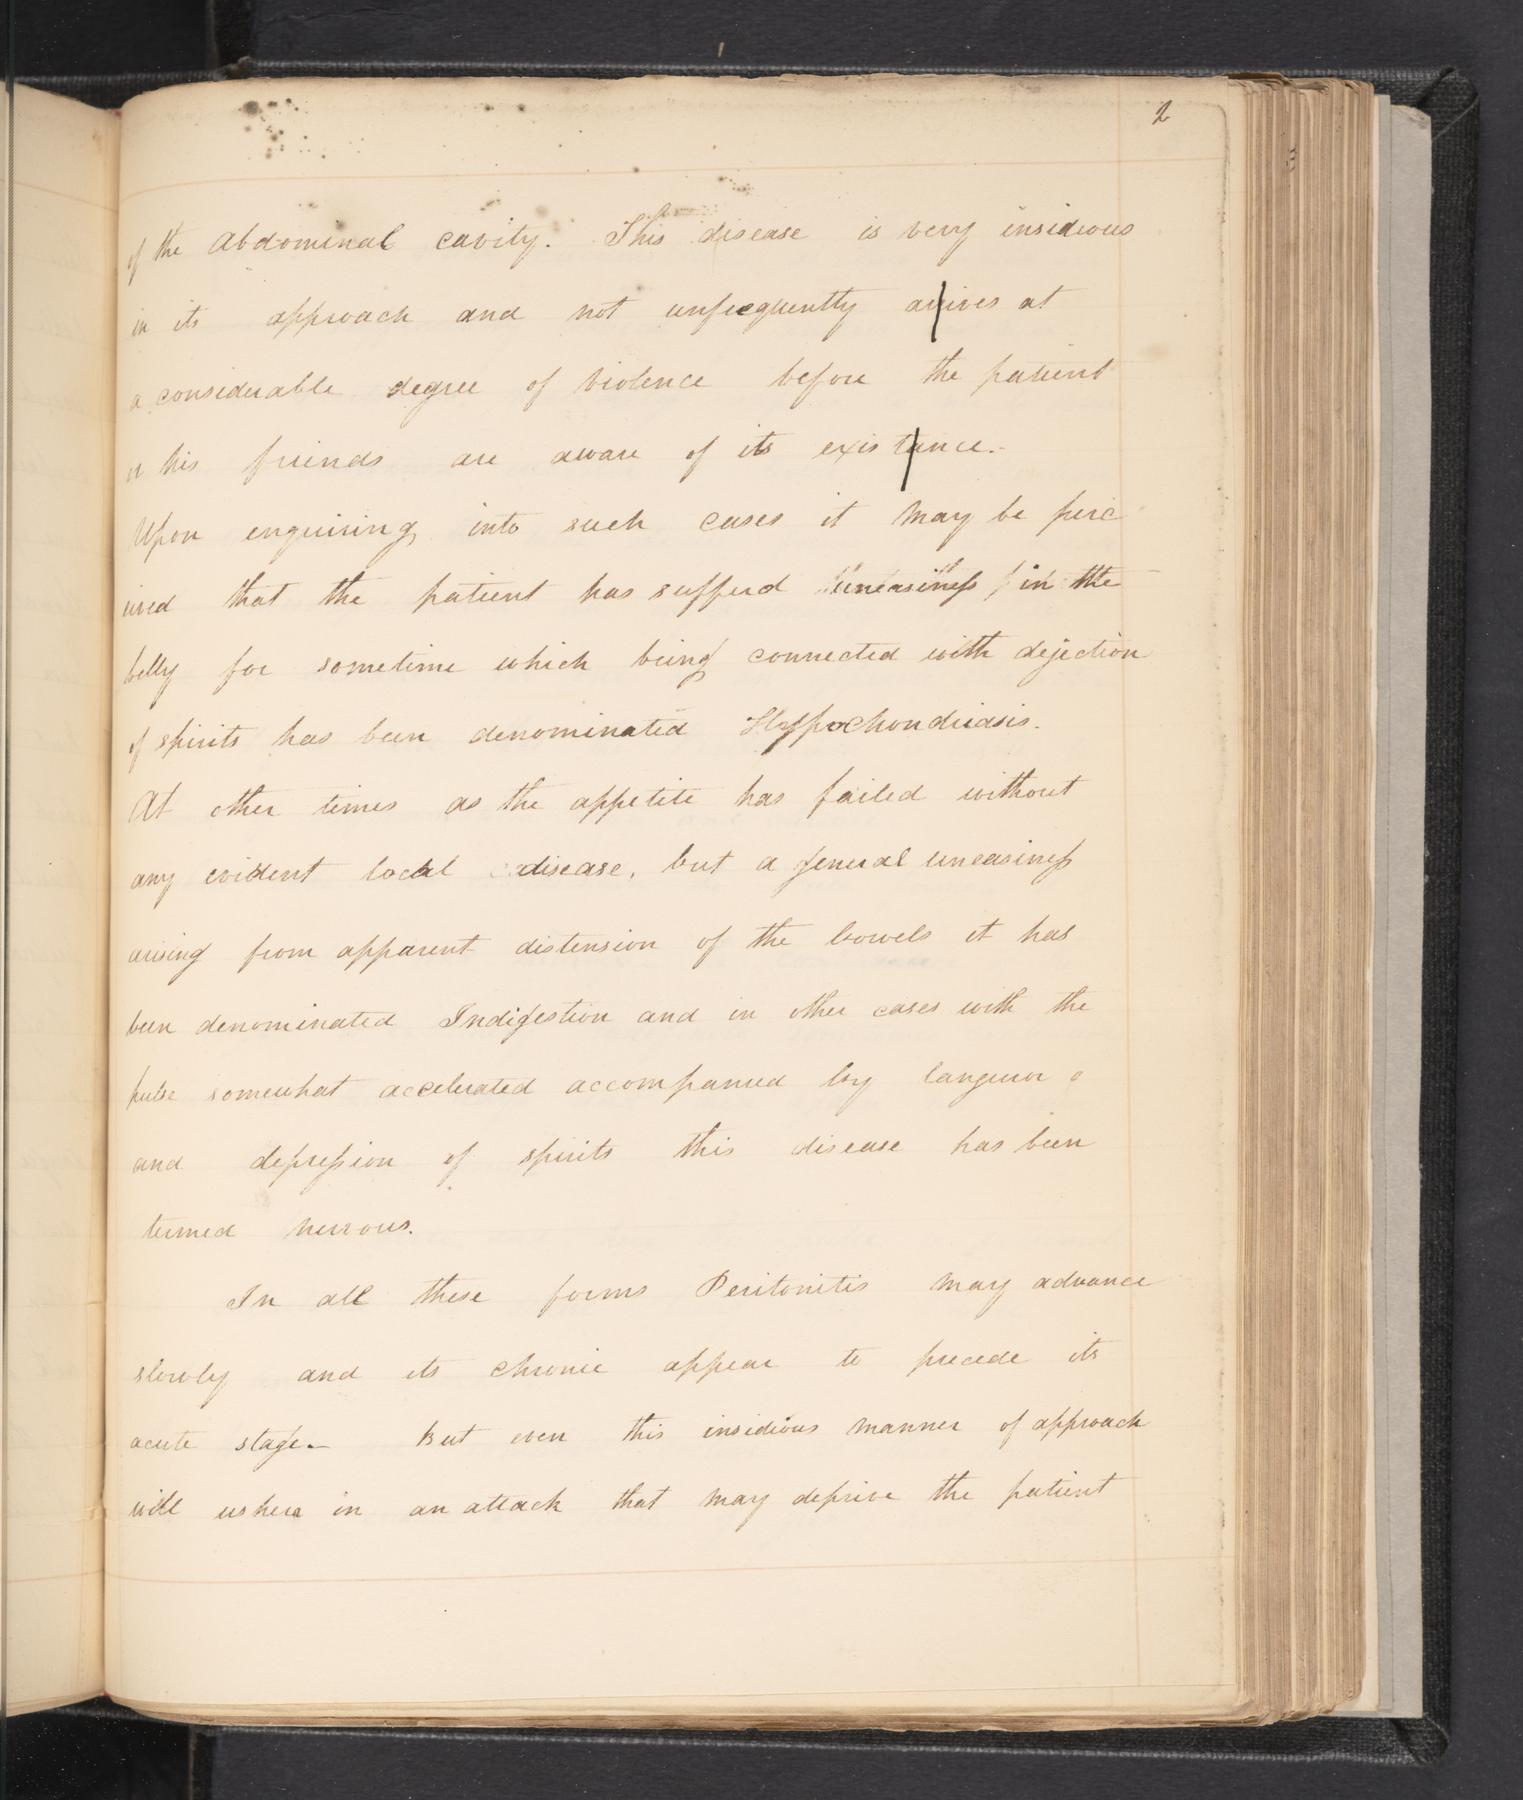 2
of the Abdominal cavity. This disease is very insidious
in its approach and not unfrequently arives at
a considerable degree of violence before the patient
or his friends are aware of its existance.
Upon enquiring into such cases it may be perc
ived that the patient has sufferd uneasiness in the
belly for sometime which being connected with dejection
of spirits has been denominated Hypochondriasis.
At other times as the appetite has failed without
any evident local disease, but a general uneasiness
arising from apparent distension of the bowels it has
been denominated Indigestion and in other cases with the
pulse somewhat accelerated accompanied by languor
and depression of spirits this disease has been
termed nervous.
In all these forms Peritonitis may advance
slowly and its chronic appear to precede its
acute stage. But even this insidious manner of approach
will usher in an attack that may deprive the patient